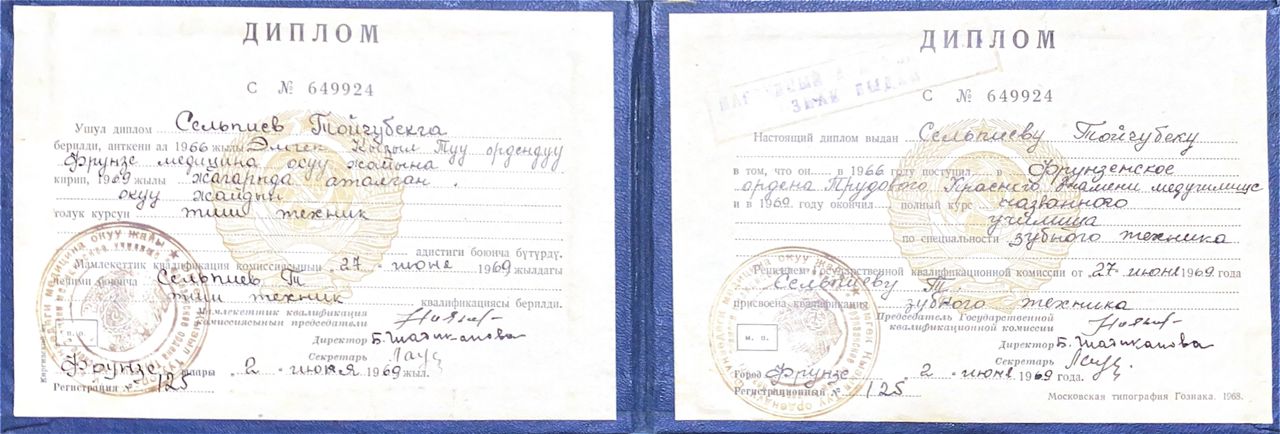 ДИПЛОМ
С № 649924
Ушул диплом Сельпиев Тойчубекга
берилди, анткени ал 1966 жылы Эмгек Кызыл Туу ордендуу
Фрунзе медицина окуу жайына
кирип, 1969 жылы жагарыда аталган
окуу жайдын
толук курсун тиш техник
адистиги боюнча бүтүрдү.
Мамлекеттик квалификация комиссиясынын 27 июне 1969 жылдагы
чечими боюнча Сельпиев Т.
тиш техник квалификациясы берилди.
Мамлекеттик квалификация
комиссиясынын председатели
Директор Б. Шатманова
Секретарь
м. о.
Фрунзе шаары 2 июля 1969 жыл.
Регистрация № 125
ДИПЛОМ
С № 649924
Настоящий диплом выдан Сельпиеву Тойчубеку
в том, что он в 1966 году поступил в Фрунзенское
ордена Трудового Красного Знамени медучилище
и в 1969 году окончил полный курс названного
училища
по специальности зубного техника
Решением Государственной квалификационной комиссии от 27 июне 1969 года
Сельпиеву Т.
присвоена квалификация зубного техника
Председатель Государственной
квалификационной комиссии
Директор Б. Шатманова
Секретарь
м. п.
Город Фрунзе 2 июне 1969 года.
Регистрационный № 125
Московская типография Гознака. 1968.